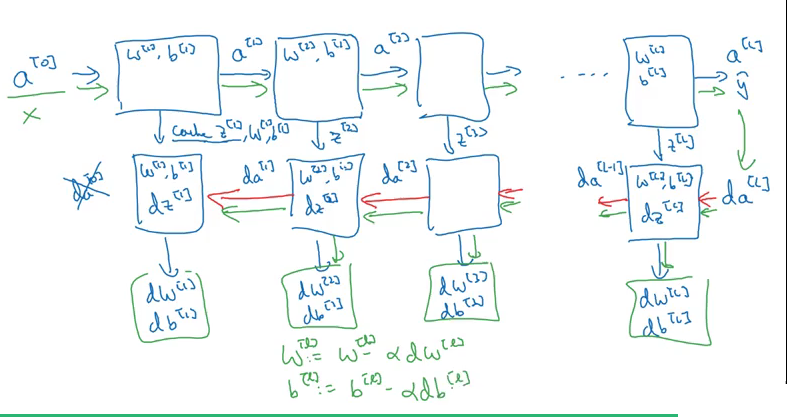 a^[0] x
w^[1], b^[1]
a^[1]
w^[2], b^[2]
a^[2]
....
w^[L]
b^[L]
a^[L]
ŷ
cache z^[1], w^[1], b^[1]
z^[2]
z^[3]
z^[L]
da^[0]
w^[1], b^[1]
dz^[1]
da^[1]
w^[2], b^[2]
dz^[2]
da^[2]
da^[L-1]
w^[L], b^[L]
dz^[L]
da^[L]
dw^[1]
db^[1]
dw^[2]
db^[2]
dw^[3]
db^[3]
dw^[L]
db^[L]
w^[l] := w^[l] - αdw^[l]
b^[l] := b^[l] - αdb^[l]